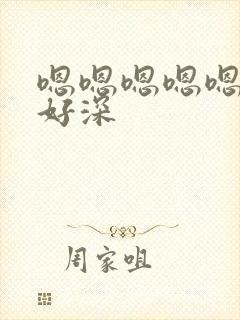 嗯嗯嗯嗯嗯
好深
周家咀